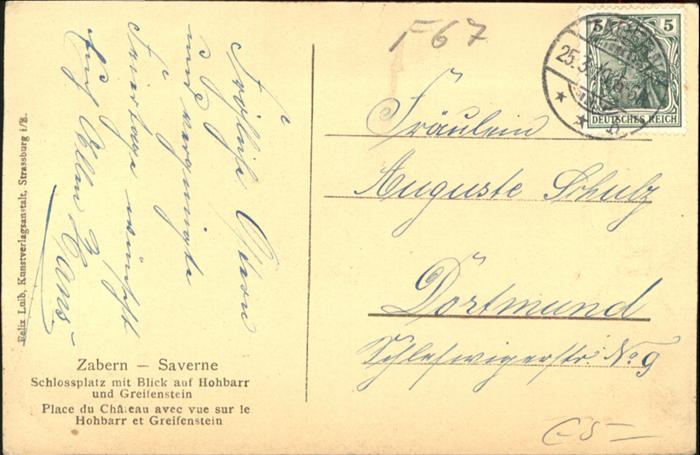 F67
5 5
DEUTSCHES REICH
25.3.
Fröhliche Ostern
und vergnügte
Feiertage wünscht
Hans
Fräulein
Auguste Schulz
Dortmund
Schleswigerstr. No 9
Felix Luib, Kunstverlagsanstalt, Strassburg i/E.
Zabern — Saverne
Schlossplatz mit Blick auf Hohbarr
und Greifenstein
Place du Château avec vue sur le
Hohbarr et Greifenstein